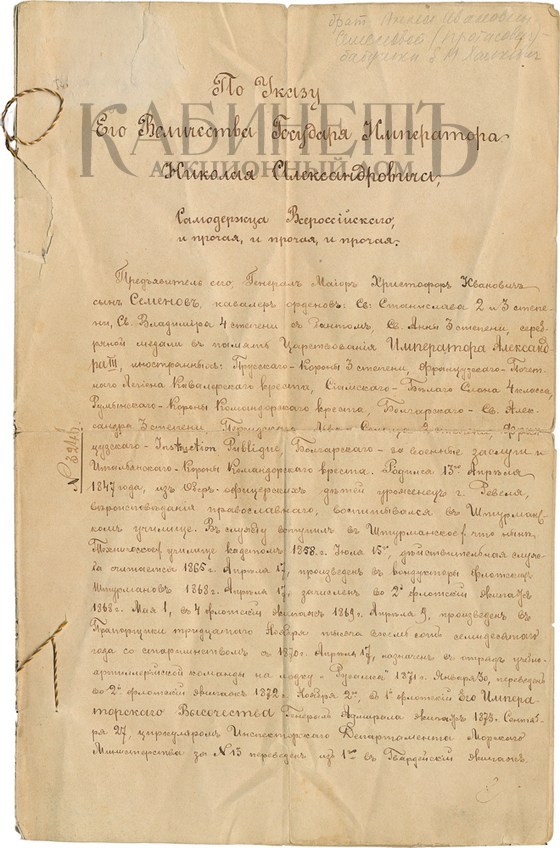 Брат Анны Ивановны
Семеновой
По Указу
КАБИНЕТЪ
Его Величества Государя Императора
АУКЦИОННЫЙ ДОМ
Николая Александровича,
Самодержца Всероссійскаго,
и прочая, и прочая, и прочая.
Предъявитель сего, Генералъ Маіоръ Христофоръ Ивановичъ
сынъ Семеновъ, кавалеръ орденовъ: Св. Станислава 2 и 3 степе-
ни, Св. Владиміра 4 степени съ бантомъ, Св. Анны 3 степени, сереб-
ряной медали въ память Царствованія Императора Александ-
ра III, иностранныхъ: Прусскаго - Короны 3 степени, Французскаго - Почет-
наго Легіона Кавалерскаго креста, Сіамскаго - Бѣлаго Слона 4 класса,
Румынскаго - Короны Командорскаго креста, Болгарскаго - Св. Алек-
сандра 3 степени, Персидскаго Льва и Солнца степени, Фран-
цузскаго - Instruction Publique, Болгарскаго - за военные заслуги и
Итальянскаго - Короны Командорскаго креста. Родился 13го Апрѣля
1847 года, изъ Оберъ-офицерскихъ дѣтей уроженецъ г. Ревеля,
вѣроисповѣданія православнаго; воспитывался въ Штурман-
комъ училище. Въ службу вступилъ въ Штурманское, что нынѣ
Техническое училище кадетомъ 1858 г. Іюла 15го, дѣйствительная служ-
ба считается 1865 г. Апрѣля 17, произведенъ въ кондукторы флотскихъ
Штурмановъ 1868 г. Апрѣля 17, зачисленъ во 2й флотскій экипажъ
1868 г. Мая 1, въ 4 флотскій экипажъ 1869 г. Апрѣля 9, произведенъ въ
Прапорщики тридцатаго Ноября тысяча восемь сотъ семидесятаго
года со старшинствомъ съ 1870 г. Апрѣля 17, назначенъ въ отрядъ учебн.
артиллерійской команды на лодку "Русалка" 1871 г. Января 30, переведенъ
во 2й флотскій экипажъ 1872 г. Ноября 2го, въ 1й флотскій Его Импера-
торскаго Высочества Генералъ Адмирала экипажъ 1873 г. Сентяб-
ря 27, циркуляромъ Инспекторскаго Департамента Морскаго
Министерства за № 13 переведенъ изъ 1го въ Гвардейскій экипажъ